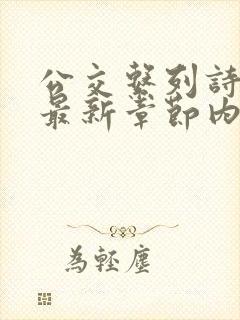 公交繫列詩
最新章節內
為輕塵